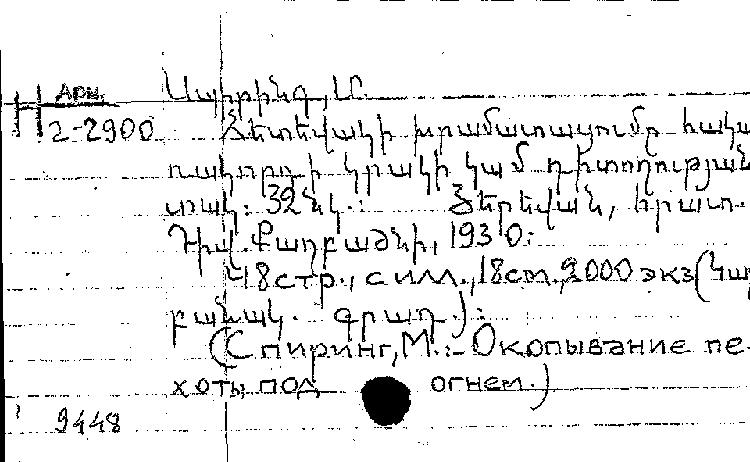 Арм.
Н
2-2900
Սպիրինգ, Մ.
Հետևակի խրամատավորումը հակա
ռակորդի կրակի կամ դիտողության
տակ: 32 նկ.: Յերեվան, հրատ.
1930:
48 стр., с илл., 18 см., 2000 экз (Կար
բանակ. գրադ.):
(Спиринг, М.:- Окопывание пе-
хоты под огнем.)
9448